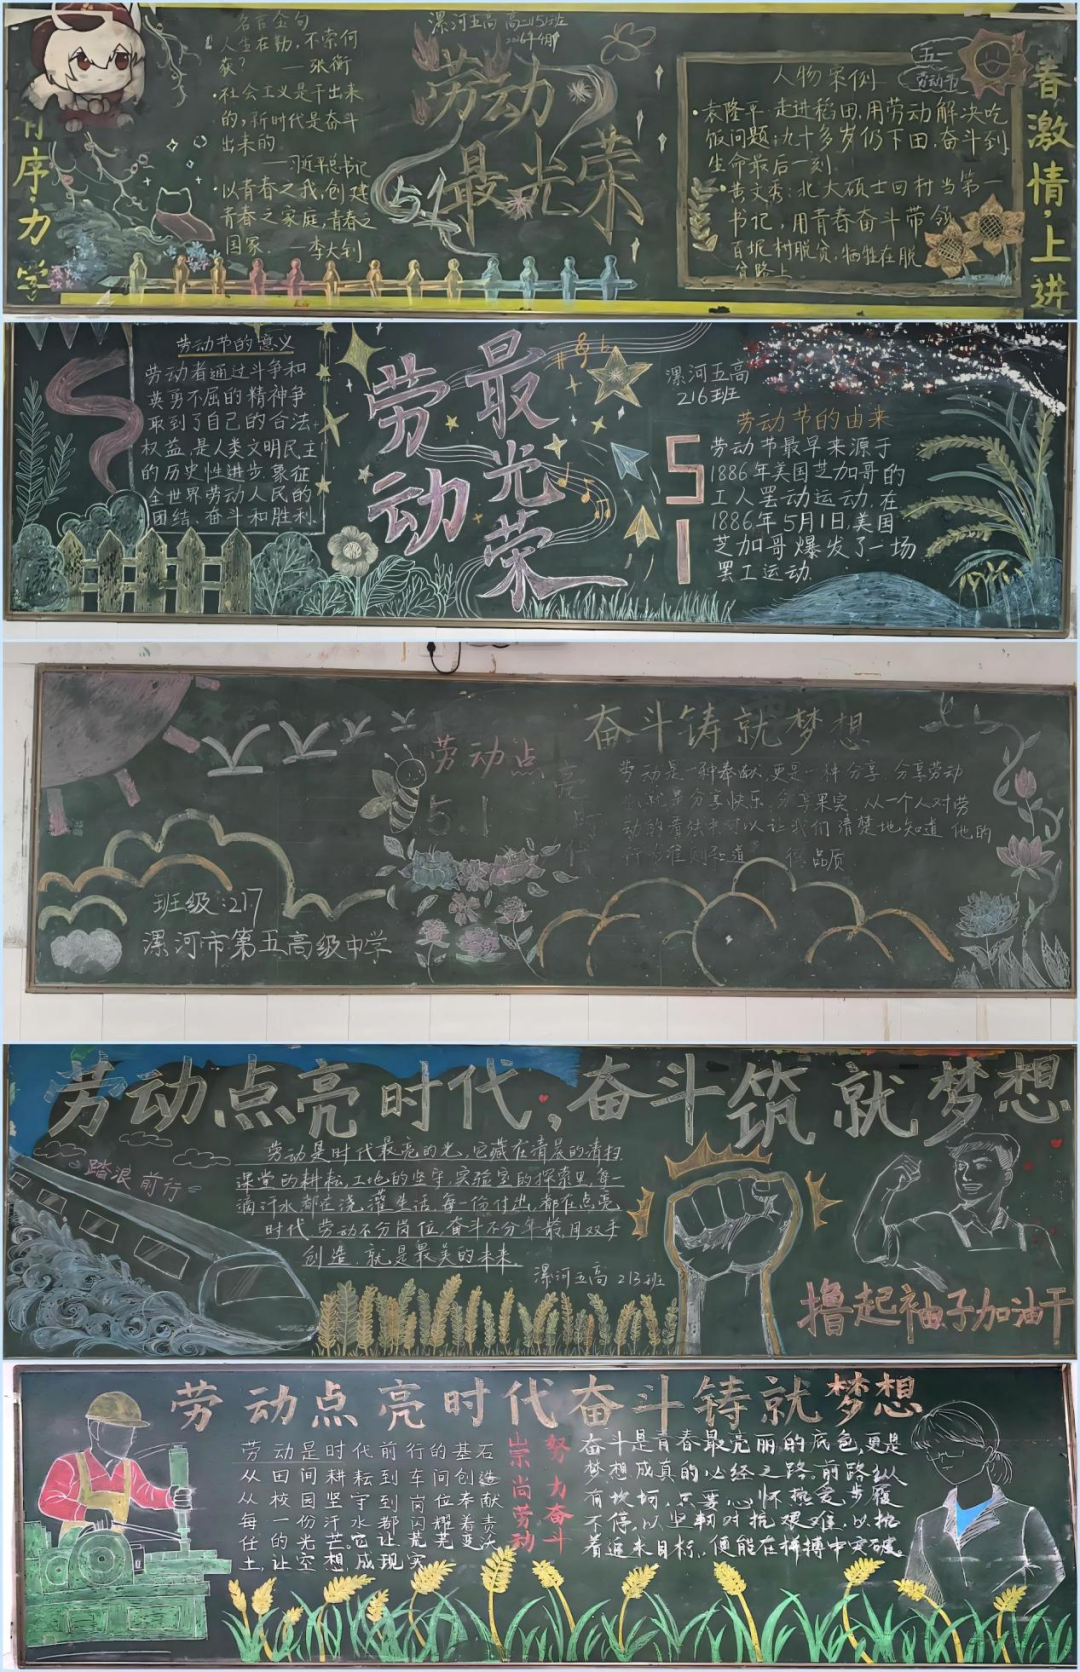 名言金句
人生在勤，不索何
获？——张衡
·社会主义是干出来
的，新时代是奋斗
出来的
——习近平总书记
·以青春之我，创建
青春之家庭，青春之
国家 ——李大钊
序·力 学
漯河五高 高一215班
2026年4月
劳动
最光荣
51
五一
劳动节
人物案例
·袁隆平：走进稻田，用劳动解决吃
饭问题；九十多岁仍下田，奋斗到
生命最后一刻。
·黄文秀：北大硕士回村当第一
书记，用青春奋斗带领
百坭村脱贫，牺牲在脱
贫路上
春激情，上进
劳动节的意义
劳动者通过斗争和
英勇不屈的精神争
取到了自己的合法
权益，是人类文明民主
的历史性进步，象征
全世界劳动人民的
团结、奋斗和胜利
劳动
最光荣
漯河五高
216班
51
劳动节的由来
劳动节最早来源于
1886年美国芝加哥的
工人罢动运动，在
1886年5月1日，美国
芝加哥爆发了一场
罢工运动.
劳动点
亮时代
5.1
奋斗铸就梦想
劳动是一种奉献，更是一种分享，分享劳动
就是分享快乐，分享果实，从一个人对劳
动的看法中可以让我们清楚地知道他的
品质
班级：217
漯河市第五高级中学
劳动点亮时代，奋斗筑就梦想
踏浪前行
劳动是时代最亮的光，它藏在清晨的清扫
课堂的耕耘，工地的坚守，实验室的探索里，每一
滴汗水都在浇灌生活，每一份付出，都在点亮
时代，劳动不分岗位，奋斗不分年龄，用双手
创造，就是最美的未来.
漯河五高 213班
撸起袖子加油干
劳动点亮时代奋斗铸就梦想
劳动是时代前行的基石
从田间耕耘到车间创造
从校园坚守到岗位奉献
每一份汗水都闪耀着责
任的光芒。它让荒芜变沃
土，让空想成现实
崇尚劳动
努力奋斗
奋斗是青春最亮丽的底色，更是
梦想成真的必经之路，前路纵
有坎坷，只要心怀热爱步履
不停，以坚韧对抗艰难，以执
着追求目标，便能在拼搏中突破